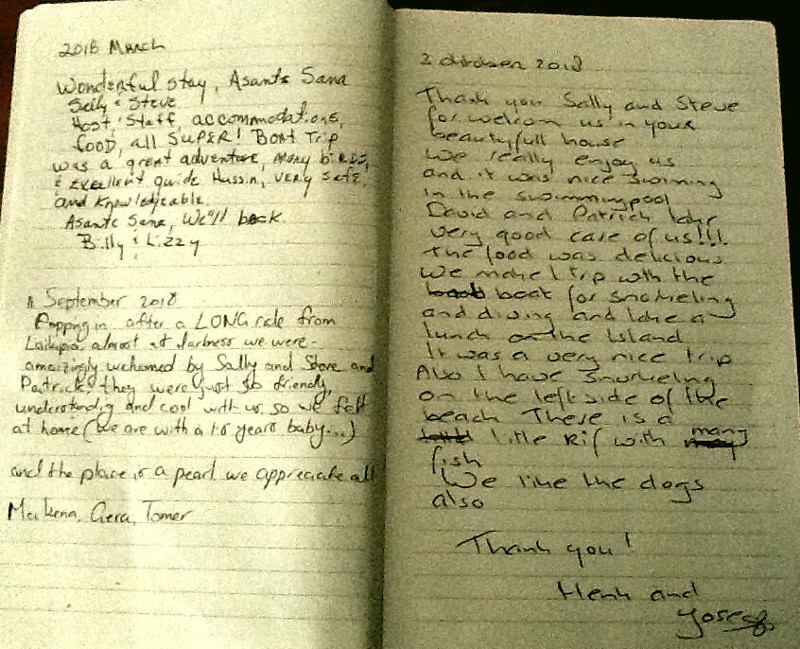 2018 March
Wonderful stay, Asante Sana
Sally & Steve
Host, Staff, accommodations,
food, all SUPER! Boat Trip
was a great adventure, many birds,
& Excellent guide Hussin, very safe,
and knowledgeable.
Asante Sana, We'll back.
Billy & Lizzy
September 2018
Popping in after a LONG ride from
Laikipia almost at darkness we were
amaizingly wehomed by Sally and Steve and
Patrick, they were just so friendly,
understanding and cool with us, so we felt
at home (we are with a 1.5 years baby...)
and the place is a pearl we appreciate all
Makena, Gera, Tomer
2 oktober 2018
Thank you Sally and Steve
for welcom us in your
beautyfull house
We really enjoy us
and it was nice swiming
in the swimmingpool
David and Patrick take
very good care of us!!!.
The food was delicious.
We make 1 trip with the
boat for snorkeling
and diving and take a
lunch on the Island
It was a very nice trip
Also I have snurkeling
on the left side of the
beach There is a
little Rif with many
fish
We like the dogs
also
Thank you!
Henk and